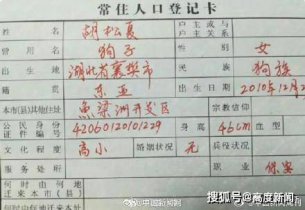 常住人口登记卡
姓名 胡松夏 户主或与户主关系
曾用名 狗子 性别 女
出生地 湖北省襄樊市 民族 狗族
籍贯 东亚 出生日期 2010.12.2
本市(县)其他住址 鱼梁洲开发区 宗教信仰
公民身份证件编号 42060120101229 身高 46cm 血型
文化程度 高小 婚姻状况 无 兵役状况
服务处所 职业 保安
何时由何地迁来本市(县)
何时由何地迁
搜狐号@高度新闻
@中国新闻网